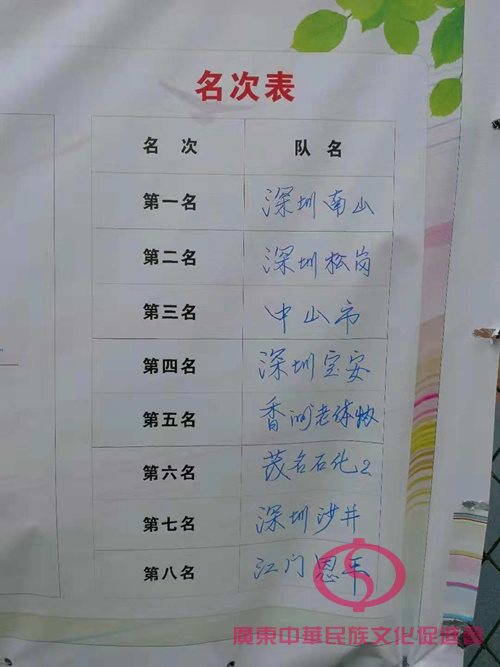 名次表
名 次 队 名
第一名 深圳南山
第二名 深圳松岗
第三名 中山市
第四名 深圳宝安
第五名 香洲老体协
第六名 茂名石化2
第七名 深圳沙井
第八名 江门恩平
廣東中華民族文化促進會